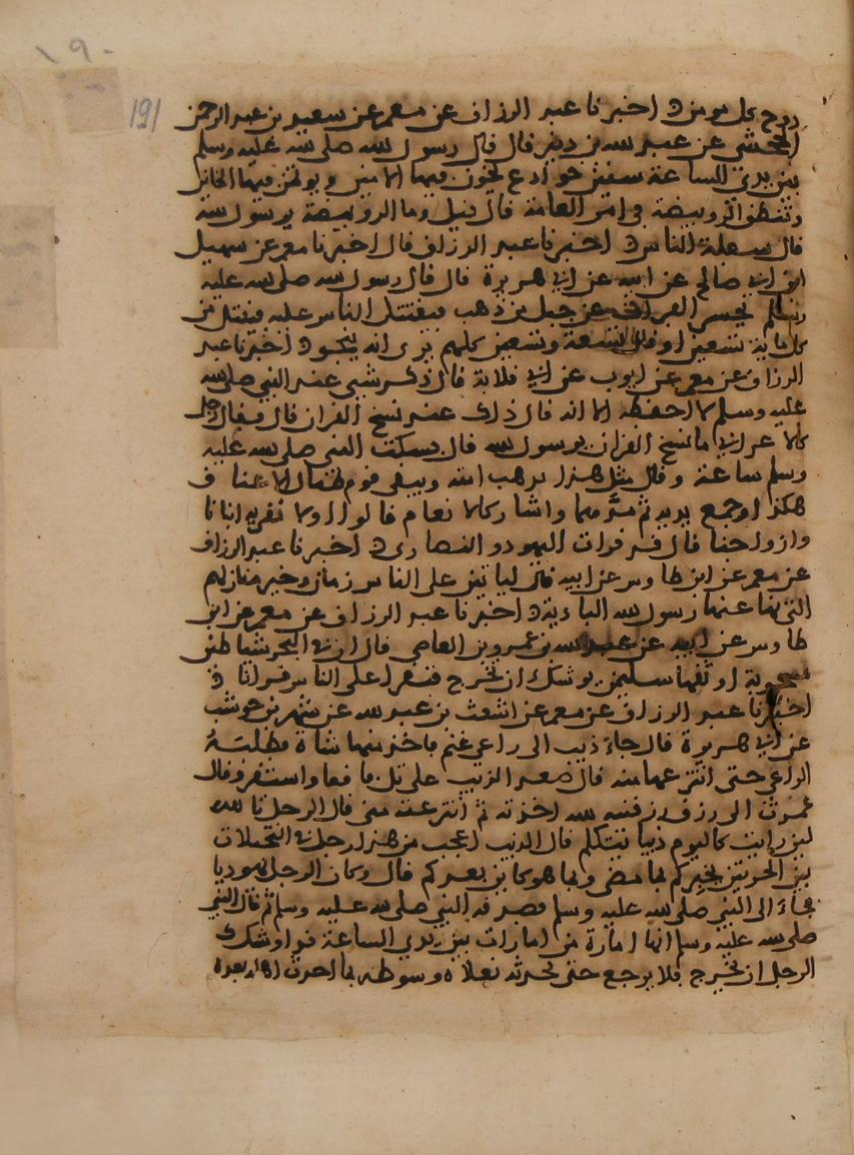 ١٩٠
191
روح كل مومن اخبرنا عبد الرزاق عن معمر عن سعيد بن عبد الرحمن
الجحشي عن عبد الله بن دينر قال قال رسول الله صلى الله عليه وسلم
بين يدي الساعة سنين خوادع يخون فيها الامين ويوتمن فيها الخاين
وتنطق الرويبضة في امر العامة قال قيل وما الرويبضة يرسول الله
قال سفلة الناس اخبرنا عبد الرزاق قال اخبرنا معمر عن سهيل
ابن ابي صالح عن ابيه عن ابي هريرة قال قال رسول الله صلى الله عليه
وسلم يحسر الفرات عن جبل من ذهب فيقتتل الناس عليه فيقتل من
كل ماية تسعين او قال تسعة وتسعين كلهم يرى انه ينجو اخبرنا عبد
الرزاق عن معمر عن ايوب عن ابي قلابة قال ذكر شيى عند النبي صلى الله
عليه وسلم لا احفظه الا انه قال ذاك عند نسخ القران قال فقال رجل
كالاعرابي ما نسخ القران يرسول الله قال فسكت النبي صلى الله عليه
وسلم ساعة وقال مثل هذا يذهب اهله ويبقى قوم طوال الاعناق
هكذا وجمع يديه ثم مدهما واشار كالانعام قالوا اولا نقريه ابنانا
وازواجنا قال قد قرات اليهود والنصارى اخبرنا عبد الرزاق
عن معمر عن ابن طاوس عن ابيه قال لياتين على الناس زمان وخير منازلهم
التي نها عنها رسول الله البادية اخبرنا عبد الرزاق عن معمر عن ابن
طاوس عن ابيه عن عبد الله بن عمرو بن العاصي قال ان في البحر شياطين
مسجونة اوثقها سليمن يوشك ان تخرج فتقرا على الناس قرانا
اخبرنا عبد الرزاق عن معمر عن اشعث بن عبد الله عن شهر بن حوشب
عن ابي هريرة قال جاء ذيب الى راعي غنم فاخذ منها شاة فطلبه
الراعي حتى انتزعها منه قال فصعد الذيب على تل فاقعا واستذفر وقال
عمدت الى رزق رزقنيه الله اخذته ثم انتزعته مني قال الرجل تا لله
لين رايت كاليوم ذيبا يتكلم قال الذيب اعجب من هذا رجل في النخلات
بين الحرتين يخبركم بما مضى وبما هو كاين بعدكم قال وكان الرجل يهوديا
فجاء الى النبي صلى الله عليه وسلم فصدقه النبي صلى الله عليه وسلم ثم قال النبي
صلى الله عليه وسلم انها امارة من امارات بين يدي الساعة قد اوشك
الرجل ان يخرج فلا يرجع حتى تحدثه نعلاه وسوطه بما احدث اهله بعده